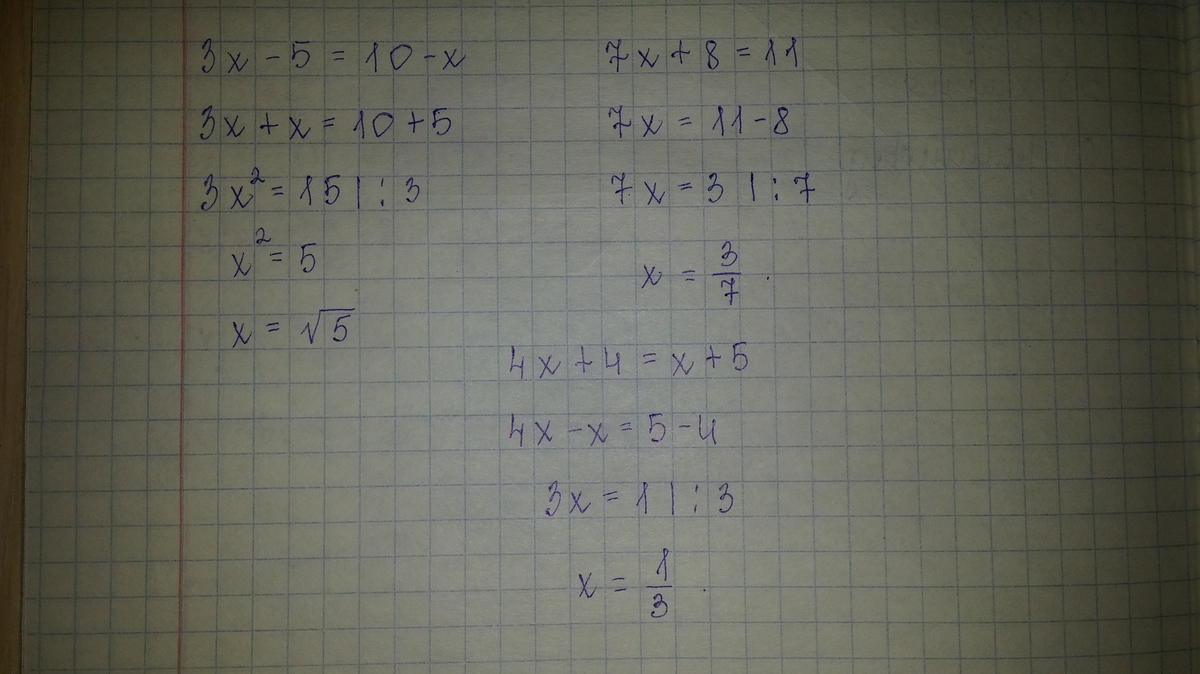 3x - 5 = 10 - x
3x + x = 10 + 5
3x² = 15 | : 3
x² = 5
x = √5
7x + 8 = 11
7x = 11 - 8
7x = 3 | : 7
x = 3/7 .
4x + 4 = x + 5
4x - x = 5 - 4
3x = 1 | : 3
x = 1/3 .